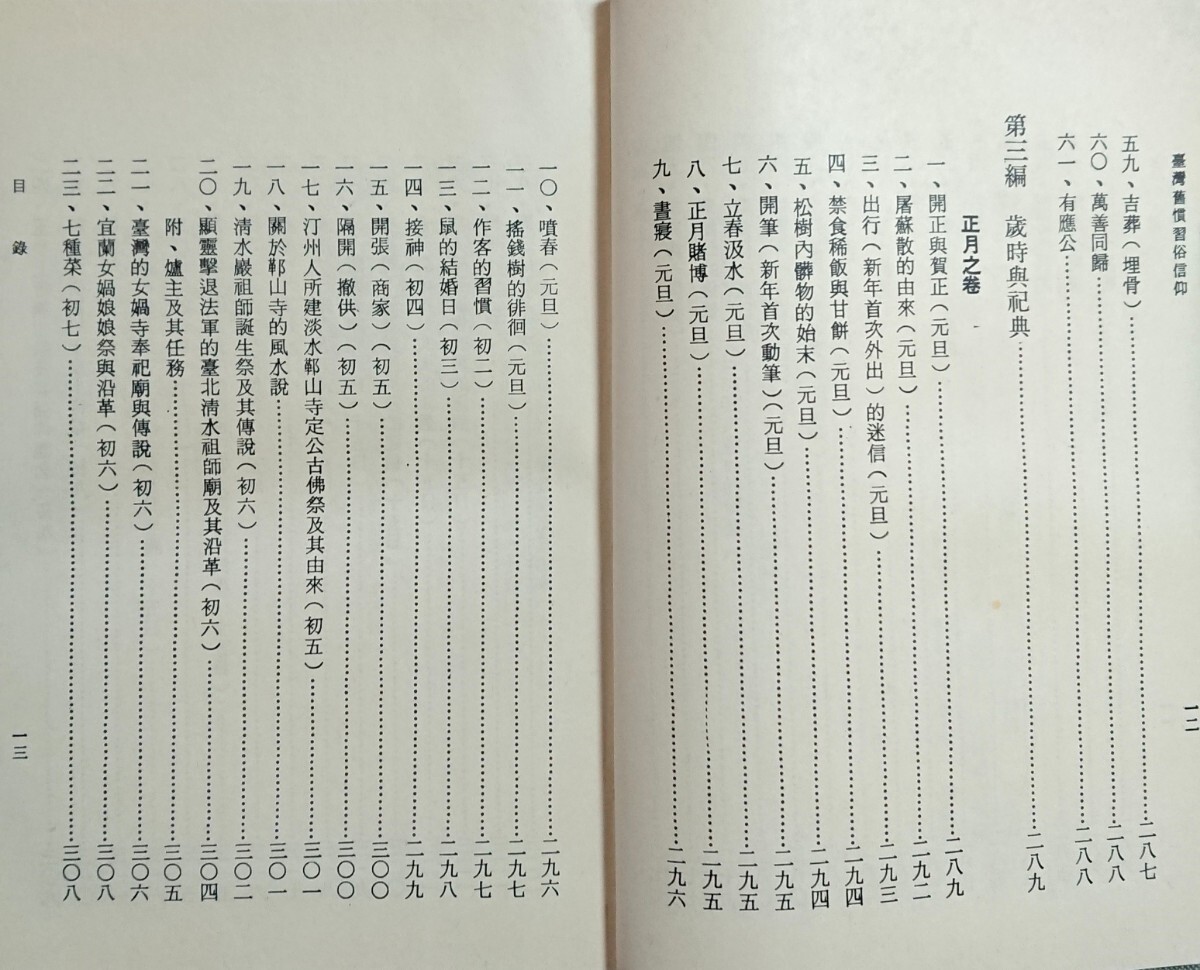 臺灣舊慣習俗信仰
一二
五九、吉葬(埋骨)……二八七
六〇、萬善同歸……二八八
六一、有應公……二八八
第三編　歲時與祀典……二八九
正月之卷
一、開正與賀正(元旦)……二八九
二、屠蘇散的由來(元旦)……二九二
三、出行(新年首次外出)的迷信(元旦)……二九三
四、禁食稀飯與甘餅(元旦)……二九四
五、松樹內髒物的始末(元旦)……二九四
六、開筆(新年首次動筆)(元旦)……二九五
七、立春汲水(元旦)……二九五
八、正月賭博(元旦)……二九五
九、晝寢(元旦)……二九六
一〇、噴春(元旦)……二九六
一一、搖錢樹的徘徊(元旦)……二九七
一二、作客的習慣(初二)……二九七
一三、鼠的結婚日(初三)……二九八
一四、接神(初四)……二九九
一五、開張(商家)(初五)……三〇〇
一六、隔開(撤供)(初五)……三〇〇
一七、汀州人所建淡水鄞山寺定公古佛祭及其由來(初五)……三〇一
一八、關於鄞山寺的風水說……三〇一
一九、清水巖祖師誕生祭及其傳說(初六)……三〇二
二〇、顯靈擊退法軍的臺北清水祖師廟及其沿革(初六)……三〇四
附、爐主及其任務……三〇五
二一、臺灣的女媧寺奉祀廟與傳說(初六)……三〇六
二二、宜蘭女媧娘娘祭與沿革(初六)……三〇八
二三、七種菜(初七)……三〇八
目錄
一三